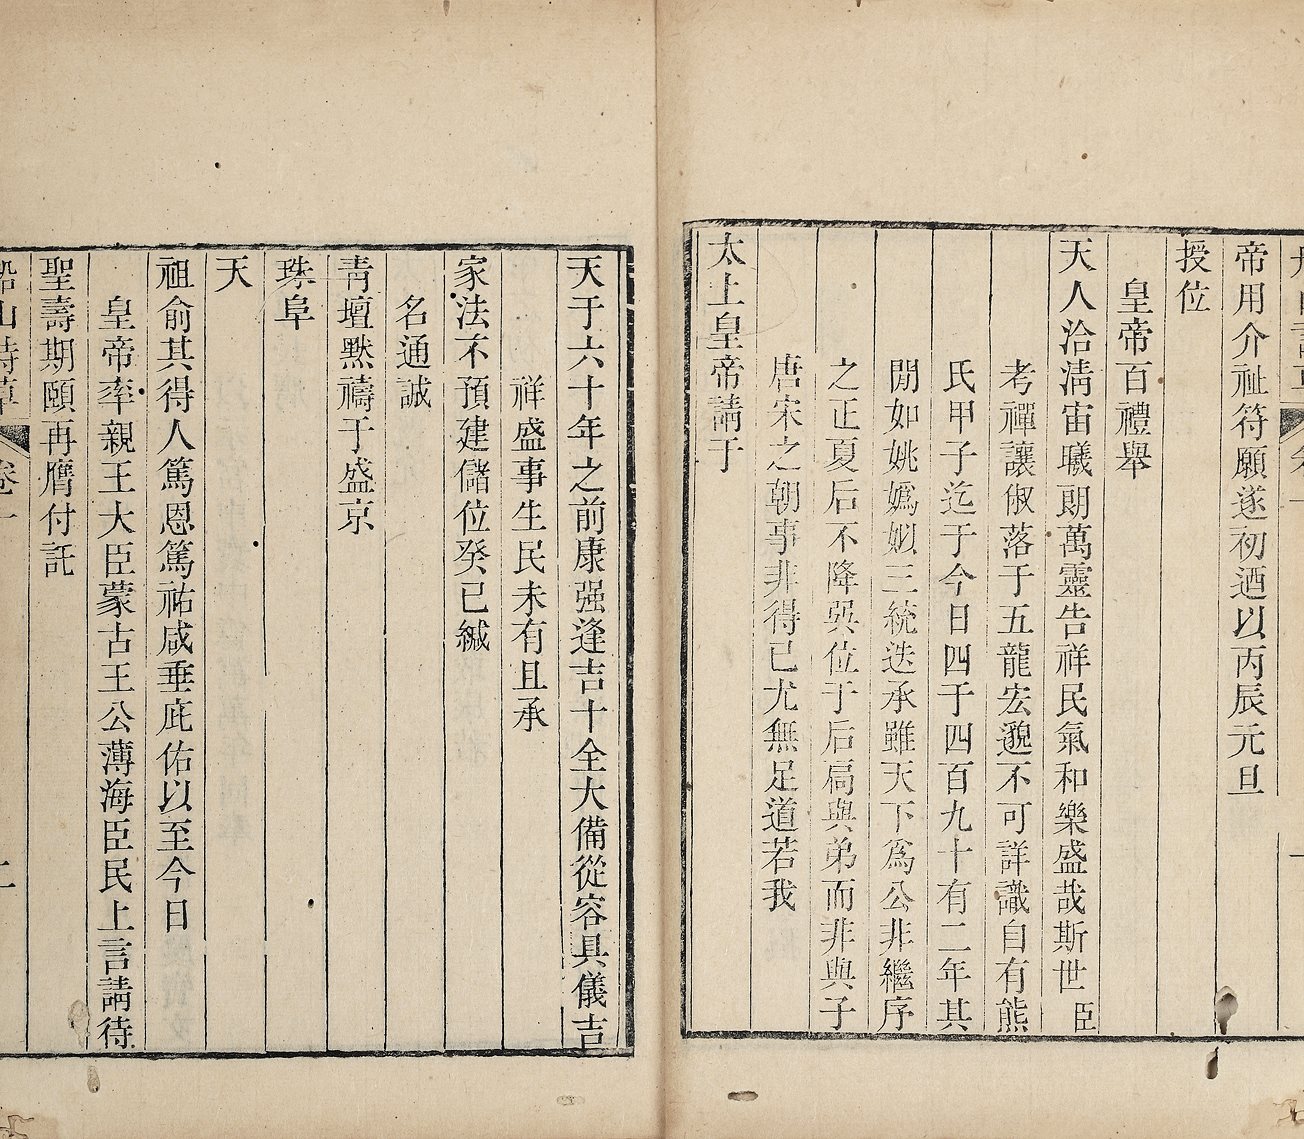 帝用介祉符願遂初迺以丙辰元旦
授位
皇帝百禮舉
天人洽淸宙曦朗萬靈告祥民氣和樂盛哉斯世臣
考禪讓俶落于五龍宏邈不可詳識自有熊
氏甲子迄于今日四千四百九十有二年其
閒如姚嬀姒三統迭承雖天下爲公非繼序
之正夏后不降巽位于后扃與弟而非與子
唐宋之朝事非得已尤無足道若我
太上皇帝請于
天于六十年之前康强逢吉十全大備從容具儀吉
祥盛事生民未有且承
家法不預建儲位癸巳緘
名通誠
靑壇默禱于盛京
珠阜
天
祖俞其得人篤恩篤祜咸垂庇佑以至今日
皇帝率親王大臣蒙古王公薄海臣民上言請待
聖壽期頤再膺付託
船山詩草 卷一 二